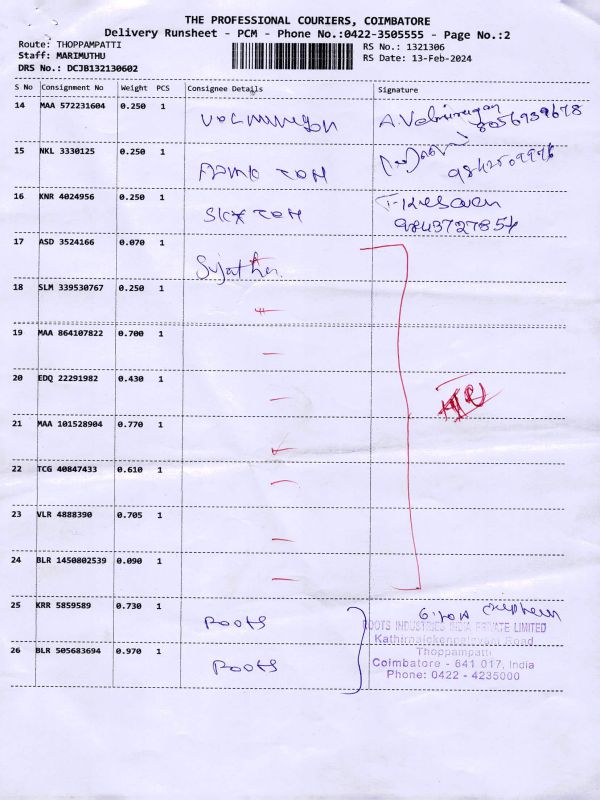 THE PROFESSIONAL COURIERS, COIMBATORE
Delivery Runsheet - PCM - Phone No.:0422-3505555 - Page No.:2
Route: THOPPAMPATTI
Staff: MARIMUTHU
DRS No.: DCJB132130602
RS No.: 1321306
RS Date: 13-Feb-2024
S No Consignment No Weight PCS Consignee Details Signature
14 MAA 572231604 0.250 1 A.Velmurugan
8056939678
15 NKL 3330125 0.250 1
16 KNR 4024956 0.250 1 T.Kesaven
9843727854
17 ASD 3524166 0.070 1 Sujatha
18 SLM 339530767 0.250 1
19 MAA 864107822 0.700 1
20 EDQ 22291982 0.430 1
21 MAA 101528904 0.770 1
22 TCG 40847433 0.610 1
23 VLR 4888390 0.705 1
24 BLR 1450802539 0.090 1
25 KRR 5859589 0.730 1 Roots
ROOTS INDUSTRIES INDIA PRIVATE LIMITED
Kathirnaickenpalayam Road
26 BLR 505683694 0.970 1 Roots
Thoppampatti
Coimbatore - 641 017, India
Phone: 0422 - 4235000